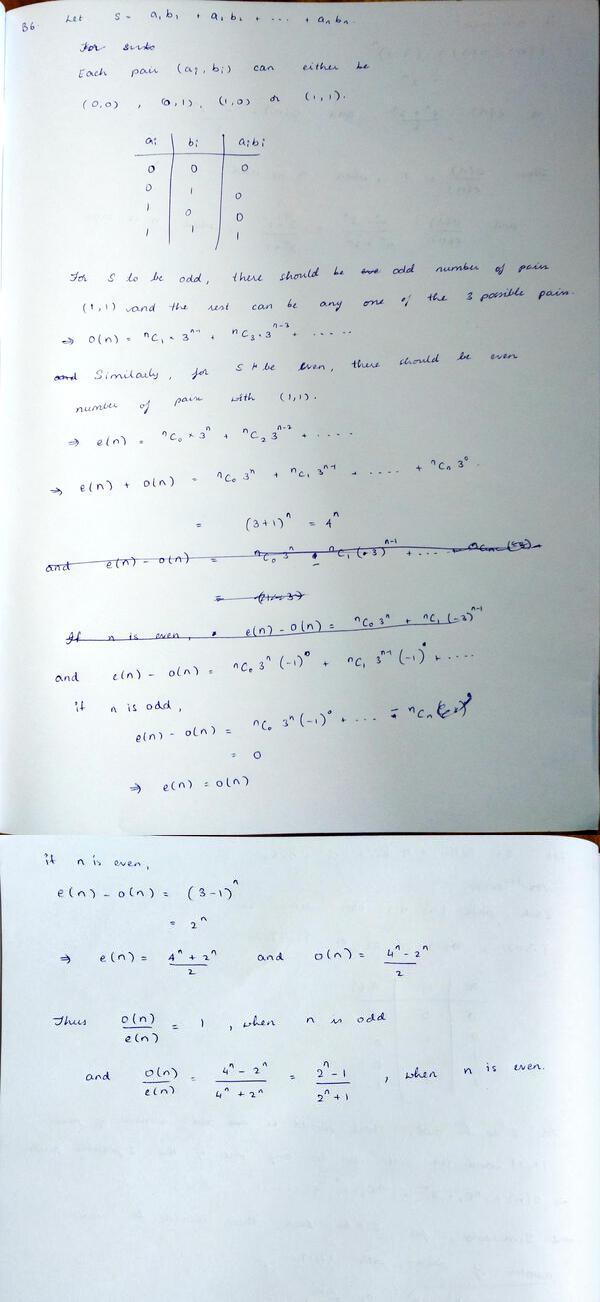 B6. Let S = a₁b₁ + a₂b₂ + .... + aₙbₙ.
For
Each pair (aᵢ, bᵢ) can either be
(0,0), (0,1), (1,0) or (1,1).
aᵢ | bᵢ | aᵢbᵢ
0 | 0 | 0
0 | 1 | 0
1 | 0 | 0
1 | 1 | 1
For S to be odd, there should be odd number of pairs
(1,1) and the rest can be any one of the 3 possible pairs.
⇒ O(n) = ⁿC₁ × 3ⁿ⁻¹ + ⁿC₃ × 3ⁿ⁻³ + .....
Similarly, for S to be even, there should be even
number of pairs with (1,1).
⇒ e(n) = ⁿC₀ × 3ⁿ + ⁿC₂ 3ⁿ⁻² + ....
⇒ e(n) + O(n) = ⁿC₀ 3ⁿ + ⁿC₁ 3ⁿ⁻¹ + .... + ⁿCₙ 3⁰.
= (3+1)ⁿ = 4ⁿ
and e(n) - O(n) =
If n is even, e(n) - O(n) = ⁿC₀ 3ⁿ + ⁿC₁ (-3)ⁿ⁻¹
and e(n) - O(n) = ⁿC₀ 3ⁿ (-1)⁰ + ⁿC₁ 3ⁿ⁻¹ (-1)¹ + ....
if n is odd,
e(n) - O(n) = ⁿC₀ 3ⁿ (-1)⁰ + ... - ⁿCₙ
= 0
⇒ e(n) = O(n)
if n is even,
e(n) - O(n) = (3-1)ⁿ
= 2ⁿ
⇒ e(n) = (4ⁿ + 2ⁿ)/2 and O(n) = (4ⁿ - 2ⁿ)/2
Thus O(n)/e(n) = 1, when n is odd
and O(n)/e(n) = (4ⁿ - 2ⁿ)/(4ⁿ + 2ⁿ) = (2ⁿ - 1)/(2ⁿ + 1), when n is even.